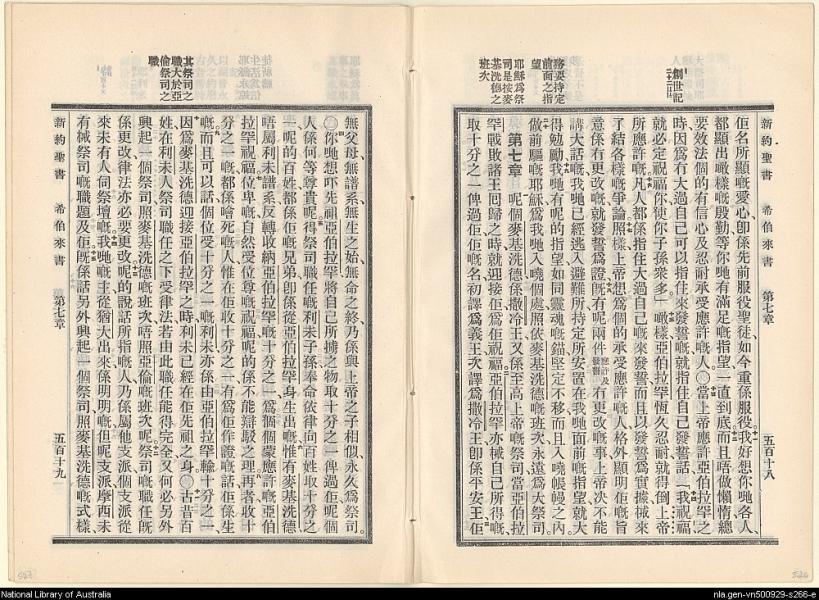 務要持定
前面之指
望
耶穌爲祭
司是按麥
基洗德之
班次
創世記
新約聖書 希伯來書 第七章 五百十八
佢名所顯嘅愛心卽係先前服役聖徒如今重係服役我好想你哋各人
都顯出噉樣嘅殷勤等你哋有滿足嘅指望一直到底而且唔做懶惰總
要效法個的有信心及忍耐承受應許嘅人〇當上帝應許亞伯拉罕之
時因爲冇大過自己可以指住來發誓嘅就指住自己發誓話「我祝福
就必定祝福你使你子孫衆多」噉樣亞伯拉罕恆久忍耐就得倒上帝
所應許嘅凡人都係指住大過自己嘅來發誓而且以發誓爲實據搣來
了結各樣嘅爭論照樣上帝想爲個的承受應許嘅人格外顯明佢嘅旨
意係冇更改嘅就發誓爲證旣有呢兩件應許及發誓冇更改嘅事上帝决不能
講大話嘅我哋已經逃入避難所持定所安置在我哋面前嘅指望就大
得勉勵我哋有呢的指望如同靈魂嘅錨堅定不移而且入嘵帳幔之內
做前驅嘅耶穌爲我哋入嘵個處照依麥基洗德嘅班次永遠爲大祭司
第七章 呢個麥基洗德係撒冷王又係至高上帝嘅祭司當亞伯拉
罕戰敗諸王囘歸之時就迎接佢爲佢祝福亞伯拉罕亦搣自己所得嘅
取十分一俾過佢佢嘅名初譯爲義王次譯爲撒冷王卽係平安王佢
其祭司之
職大於亞
倫祭司之
職
無父母無譜系無生之始無命之終乃係與上帝之子相似永久爲祭司
〇你哋想吓先祖亞伯拉罕將自己所擄之物取十分之一俾過佢呢個
人係何等尊貴呢得祭司職任嘅利未子孫奉命依律向百姓取十分之
一呢的百姓都係佢嘅兄弟卽係從亞伯拉罕身生出嘅惟有麥基洗德
唔屬利未譜系反轉收納亞伯拉罕嘅十分之一爲個個蒙應許嘅亞伯
拉罕祝福位卑嘅自然受位尊嘅祝福呢的係不能辯駁之理再者收十
分之一嘅都係噲死嘅人惟在佢收十分之一有爲佢作證嘅話佢係生
嘅而且可以話個位受十分之一嘅利未亦係由亞伯拉罕輸十分之一
因爲麥基洗德迎接亞伯拉罕之時利未已經在佢先祖之身〇古昔百
姓在利未人祭司職任之下受律法若由此職任能得完全又何必另外
興起一個祭司照麥基洗德嘅班次唔照亞倫嘅班次呢祭司嘅職任旣
係更改律法亦必要更改呢的說話所指嘅人乃係屬他支派個支派從
來未有人伺祭壇嘅我哋嘅主從猶大出來係明明嘅但呢支派摩西未
有搣祭司嘅職題及佢旣係話另外興起一個祭司照麥基洗德嘅式樣
新約聖書 希伯來書 第七章 五百十九
National Library of Australia
nla.gen-vn500929-s266-e